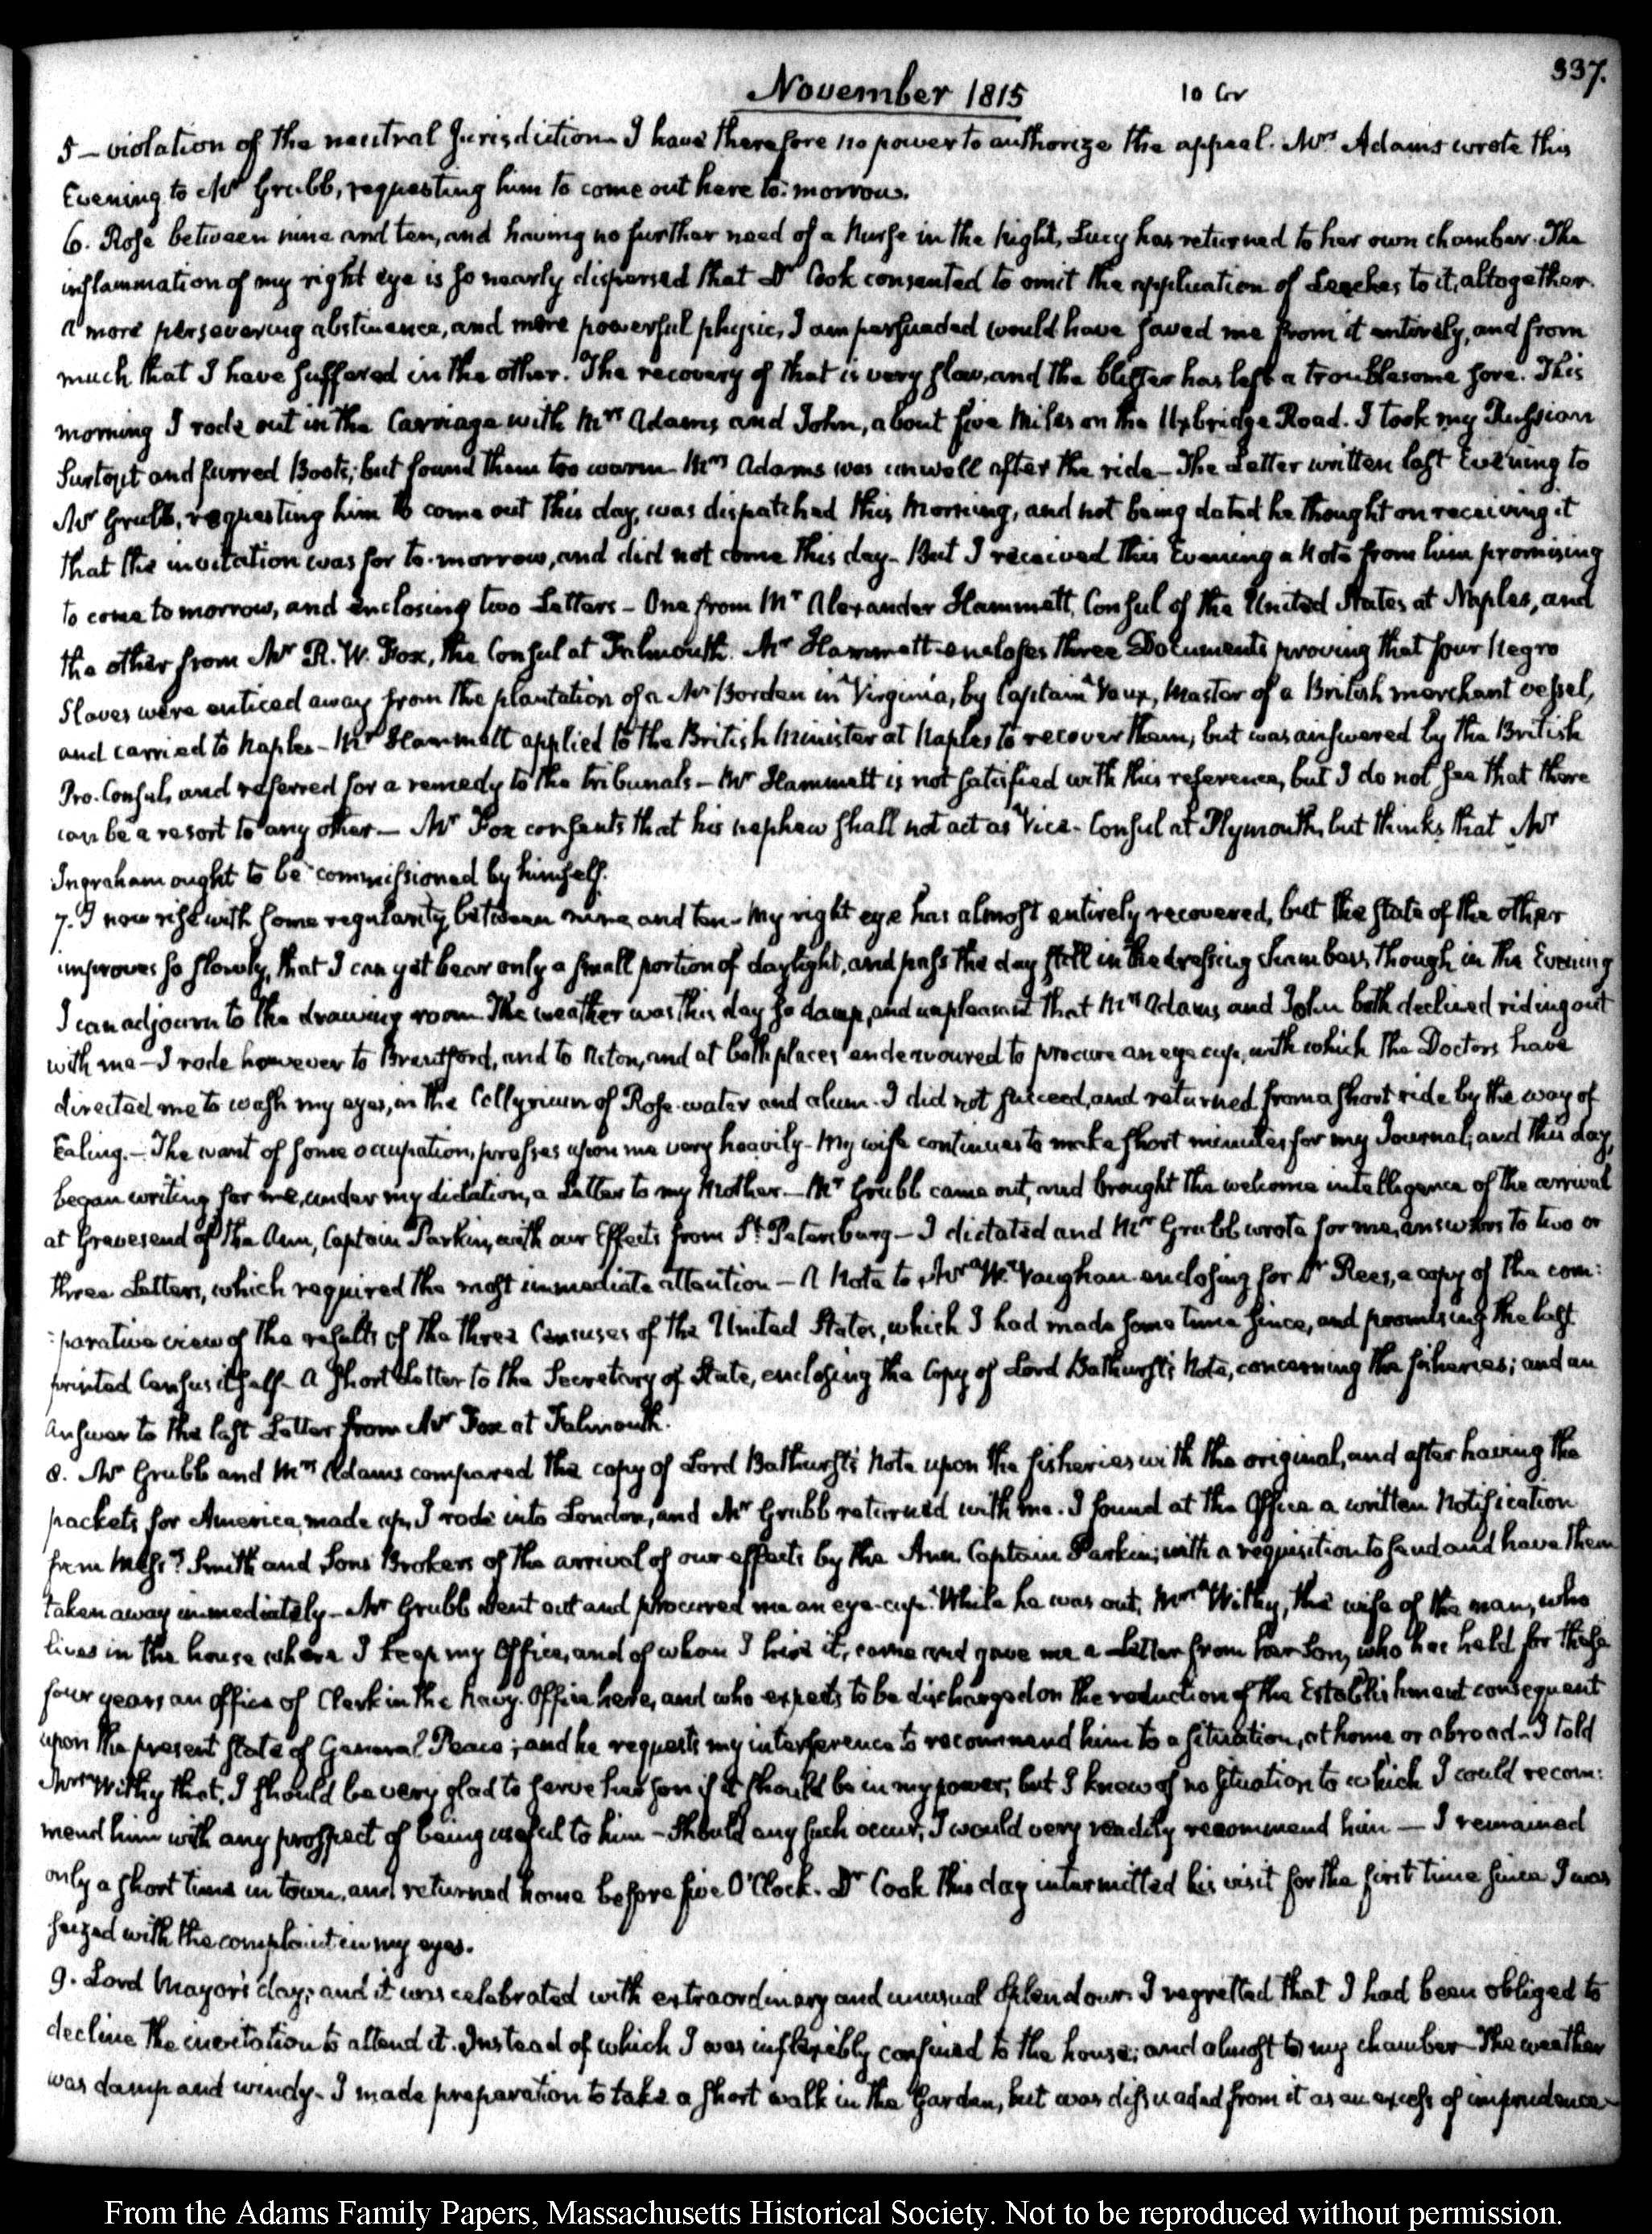 337.
November 1815
5 — violation of the neutral Jurisdiction — I have therefore no power to authorize the appeal. Mrs Adams wrote this
Evening to Mr Grubb, requesting him to come out here to-morrow.
6. Rose between nine and ten, and having no further need of a Nurse in the Night, Lucy has returned to her own chamber. The
inflammation of my right eye is so nearly dispersed that Dr Cook consented to omit the application of Leeches to it, altogether.
A more persevering abstinence, and more powerful physic, I am persuaded would have saved me from it entirely, and from
much that I have suffered in the other. The recovery of that is very slow, and the blister has left a troublesome sore. This
morning I rode out in the Carriage with Mrs Adams and John, about five Miles on the Uxbridge Road. I took my Russian
Surtout and furred Boots; but found them too warm — Mrs Adams was unwell after the ride — The Letter written last Evening to
Mr Grubb, requesting him to come out this day, was dispatched this Morning, and not being dated he thought on receiving it
that the invitation was for to-morrow, and did not come this day — But I received this Evening a Note from him promising
to come tomorrow, and enclosing two Letters — One from Mr Alexander Hammett, Consul of the United States at Naples, and
the other from Mr R. W. Fox, the Consul at Falmouth. Mr Hammett encloses three Documents proving that four Negro
Slaves were enticed away from the plantation of a Mr Borden in Virginia, by Captain Vaux, Master of a British merchant vessel,
and carried to Naples — Mr Hammett applied to the British Minister at Naples to recover them, but was answered by the British
Pro-Consul, and referred for a remedy to the tribunals — Mr Hammett is not satisfied with this reference, but I do not see that there
can be a resort to any other — Mr Fox consents that his nephew shall not act as Vice-Consul at Plymouth, but thinks that Mr
Ingraham ought to be commissioned by himself.
7. I now rise with some regularity, between nine and ten — My right eye has almost entirely recovered, but the state of the other
improves so slowly, that I can yet bear only a small portion of daylight, and pass the day still in the dressing chamber, though in the Evening
I can adjourn to the drawing room. The weather was this day so damp, and unpleasant that Mrs Adams and John both declined riding out
with me — I rode however to Brentford, and to Acton, and at both places endeavoured to procure an eye cup, with which the Doctors have
directed me to wash my eyes, in the Collyrium of Rose-water and alum. I did not succeed, and returned from a short ride by the way of
Ealing. — The want of some occupation, presses upon me very heavily — My wife continues to make short minutes for my Journal; and this day,
began writing for me, under my dictation, a Letter to my Mother. — Mr Grubb came out, and brought the welcome intelligence of the arrival
at Gravesend of the Ann, Captain Parkin, with our Effects from St Petersburg — I dictated and Mr Grubb wrote for me, answers to two or
three Letters, which required the most immediate attention — A Note to Mr W. Vaughan enclosing for Dr Rees, a copy of the com:
:parative view of the results of the three Censuses of the United States, which I had made some time since, and promising the last
printed Census itself — A short Letter to the Secretary of State, enclosing the Copy of Lord Bathurst's Note, concerning the fisheries; and an
Answer to the last Letter from Mr Fox at Falmouth.
8. Mr Grubb and Mrs Adams compared the copy of Lord Bathurst's Note upon the fisheries with the original, and after having the
packets for America, made up, I rode into London, and Mr Grubb returned with me. I found at the Office a written Notification
from Messrs Smith and Sons Brokers of the arrival of our effects by the Ann, Captain Parkin; with a requisition to send and have them
taken away immediately — Mr Grubb went out and procured me an eye-cup. While he was out, Mrs Withy, the wife of the man, who
lives in the house where I keep my Office, and of whom I hire it, came and gave me a Letter from her Son, who has held for these
four years an office of Clerk in the Navy-Office here, and who expects to be discharged on the reduction of the Establishment consequent
upon the present state of General Peace; and he requests my interference to recommend him to a situation, at home or abroad — I told
Mrs Withy that, I should be very glad to serve her son if it should be in my power; but I knew of no situation to which I could recom:
mend him with any prospect of being useful to him — Should any such occur, I would very readily recommend him — I remained
only a short time in town, and returned home before five O'Clock. Dr Cook this day intermitted his visit for the first time since I was
seized with the complaint in my eyes.
9. Lord Mayor's day; and it was celebrated with extraordinary and unusual Splendour. I regretted that I had been obliged to
decline the invitation to attend it. Instead of which I was inflexibly confined to the house; and almost to my chamber — The weather
was damp and windy — I made preparation to take a short walk in the Garden, but was dissuaded from it as an excess of imprudence —
From the Adams Family Papers, Massachusetts Historical Society. Not to be reproduced without permission.